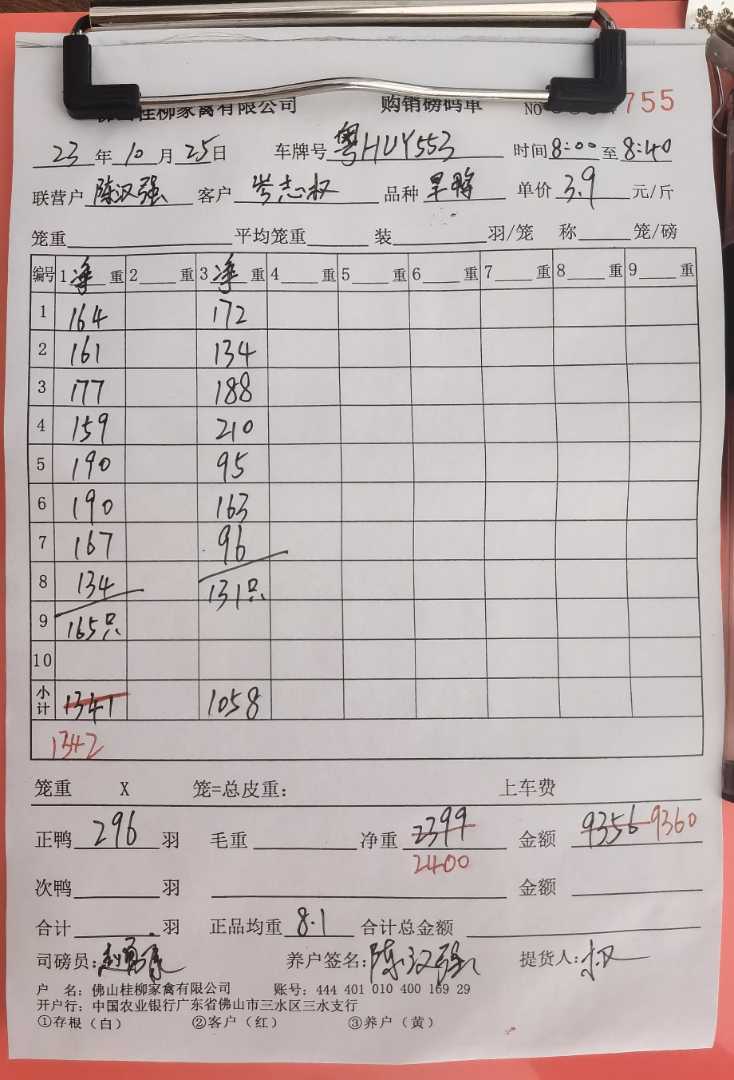 佛山桂柳家禽有限公司 购销磅码单 NO 755
23年10月25日 车牌号 粤HUY553 时间 8:00 至 8:40
联营户 陈汉强 客户 岑志权 品种 单价 3.9 元/斤
笼重 平均笼重 装 羽/笼 称 笼/磅
编号 1 净 重 2 重 3 净 重 4 重 5 重 6 重 7 重 8 重 9 重
1 164 172
2 161 134
3 177 188
4 159 210
5 190 95
6 190 163
7 167 96
8 134 131只
9 165只
10
小计 1341 1058
1342
笼重 X 笼=总皮重: 上车费
正鸭 296 羽 毛重 净重 2399 金额 9356 9360
2400
次鸭 羽 金额
合计 羽 正品均重 8.1 合计总金额
司磅员: 养户签名: 陈汉强 提货人: 权
户 名: 佛山桂柳家禽有限公司 账号: 444 401 010 400 169 29
开户行: 中国农业银行广东省佛山市三水区三水支行
①存根(白) ②客户(红) ③养户(黄)